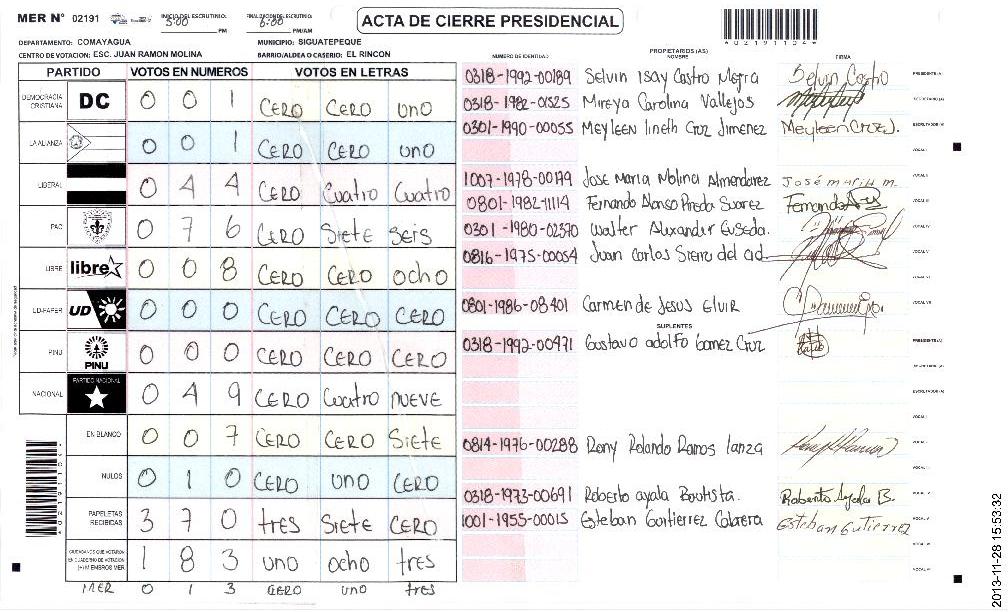 MER N° 02191 INICIO DEL ESCRUTINIO: 5:00 PM FINALIZACION DEL ESCRUTINIO: 6:00 PM/AM
ACTA DE CIERRE PRESIDENCIAL
DEPARTAMENTO: COMAYAGUA MUNICIPIO: SIGUATEPEQUE
CENTRO DE VOTACION: ESC. JUAN RAMON MOLINA BARRIO/ALDEA O CASERIO: EL RINCON
PARTIDO VOTOS EN NUMEROS VOTOS EN LETRAS
DEMOCRACIA CRISTIANA DC 0 0 1 CERO CERO UNO
LA ALIANZA 0 0 1 CERO CERO UNO
LIBERAL 0 4 4 CERO Cuatro Cuatro
PAC 0 7 6 CERO SIETE SEIS
LIBRE libre 0 0 8 CERO CERO ocho
UD-FAPER UD 0 0 0 CERO CERO CERO
PINU PINU 0 0 0 CERO CERO CERO
NACIONAL PARTIDO NACIONAL 0 4 9 CERO Cuatro NUEVE
EN BLANCO 0 0 7 CERO CERO SIETE
NULOS 0 1 0 CERO UNO CERO
PAPELETAS RECIBIDAS 3 7 0 tres SIETE CERO
CIUDADANOS QUE VOTARON EN CUADERNO DE VOTACION (+) MIEMBROS MER 1 8 3 UNO ocho tres
MER 0 1 3 CERO UNO tres
NUMERO DE IDENTIDAD PROPIETARIOS (AS) NOMBRE FIRMA
0318-1992-00189 Selvin Isay Castro Mejra Selvin Castro PRESIDENTE (A)
0318-1982-01525 Mireya Carolina Vallejos SECRETARIO (A)
0301-1990-00055 Meyleen lineth Cruz Jimenez Meyleen Cruz J. ESCRUTADOR (A)
VOCAL I
1007-1978-00179 Jose Maria Molina Almendarez José maria m. VOCAL II
0801-1982-11114 Fernando Alonso Preda Suarez Fernando VOCAL III
0301-1980-02370 Walter Alexander Euseda. VOCAL IV
0816-1975-00054 Juan Carlos Sierra del cid VOCAL V
VOCAL VI
0801-1986-08401 Carmen de Jesus Elvir VOCAL VII
SUPLENTES
0318-1992-00471 Gustavo adolfo Gomez Cruz PRESIDENTE (A)
SECRETARIO (A)
ESCRUTADOR (A)
VOCAL I
0814-1976-00288 Rony Rolando Ramos lanza VOCAL II
VOCAL III
0318-1973-00691 Roberto ayala Bautista. Roberto Ayala B. VOCAL IV
1001-1955-00015 Esteban Gutierrez Cabrera Esteban Gutierrez VOCAL V
VOCAL VI
VOCAL VII
2013-11-28 15:53:32